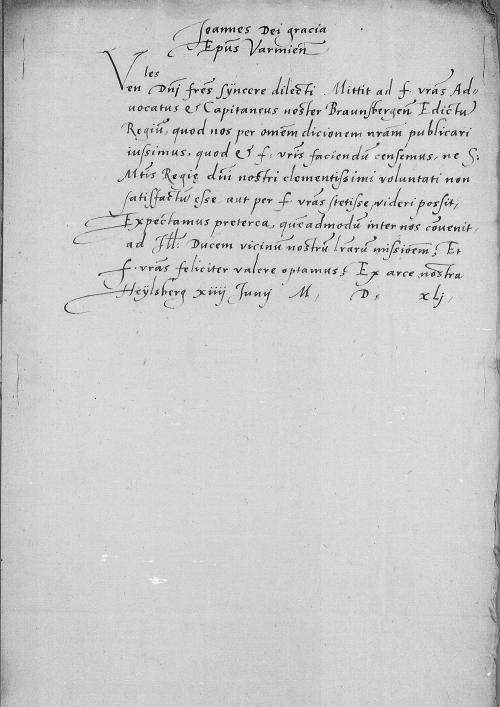 Joannes Dei gracia
Epūs Varmień
Vles
en Dn̄i fr̄es syncere dilecti Mittit ad f. vr̄as Ad=
uocatus & Capitaneus noster Braunsbergeń Edictū
Regiū, quod nos per om̄em dicionem nr̄am publicari
iussimus, quod & f. vr̄is faciendū censemus, ne S:
Mtis Regię dn̄i nostri clementissimi voluntati non
satisfactū esse aut per f. vr̄as stetisse videri possit,
Expectamus preterea, quēadmodū inter nos conuenit,
ad Jll: Ducem vicinū nostrū lr̄arū missioēm, Et
f. vr̄as feliciter valere optamus, Ex arce nostra
Heÿlsberg xiiij Junij M. D. xlj,